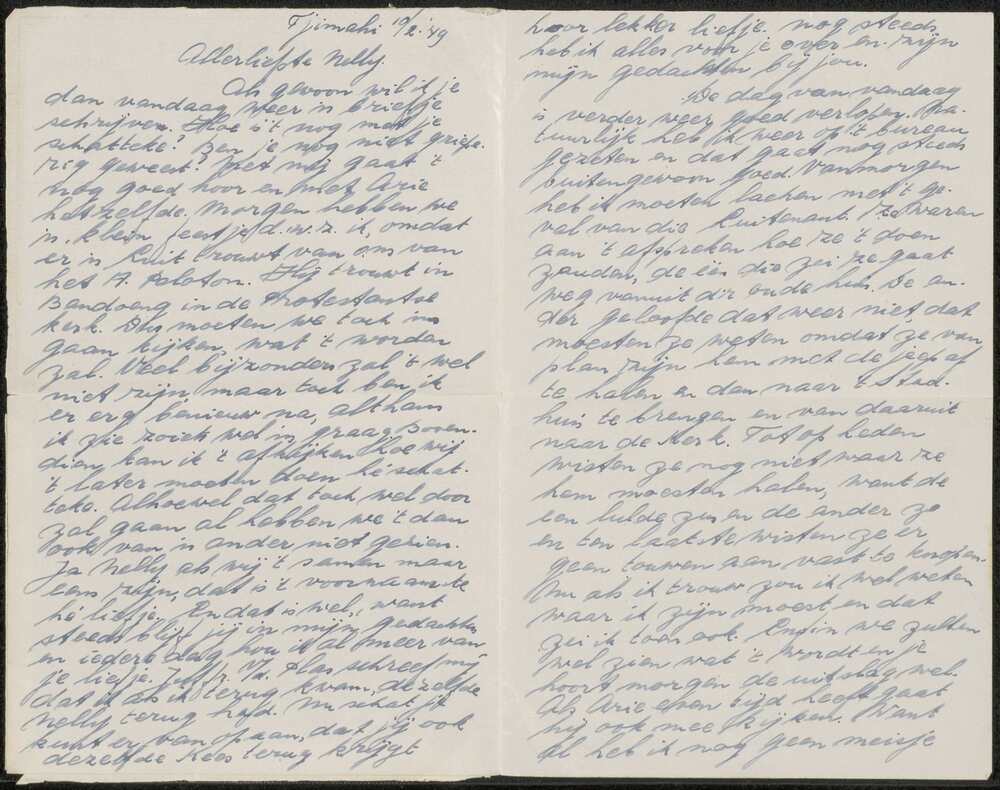 Tjimahi 10/2.'49
Allerliefste Nelly.
Als gewoon wil ik je
dan vandaag weer 'n briefje
schrijven. Hoe is 't nog met je
schatteke? Ben je nog niet grieperig
geweest? Met mij gaat 't
nog goed hoor en met Arie
hetzelfde. Morgen hebben we
'n klein feestje d.w.z. ik, omdat
er 'n Luit trouwt van ons van
het A. Peloton. Hij trouwt in
Bandoeng in de Protestantse
kerk. Dus moeten we toch ins
gaan kijken, wat 't worden
zal. Veel bijzonders zal 't wel
niet zijn, maar toch ben ik
er erg benieuw na, althans
ik zie zoiets wel 'ns graag Boven-
dien kan ik 't afkijken hoe wij
't later moeten doen hé schat-
teke. Alhoewel dat toch wel door
zal gaan al hebben we 't dan
ook van 'n ander niet gezien.
Ja Nelly als wij 't samen maar
eens zijn, dat is 't voornaamste
hé liefje. En dat is wel, want
steeds blijf jij in mijn gedachten
en iedere dag hou ik al meer van
je liefje. Juffr. v/d. Plas schreef mij
dat ik als ik terug kwam, dezelfde
Nelly terug had. Nu schat je
kunt er van op aan, dat jij ook
dezelfde Kees terug krijgt
hoor lekker liefje. nog steeds
heb ik alles voor je over en zijn
mijn gedachten bij jou.
De dag van vandaag
is verder weer goed verlopen. Na-
tuurlijk heb ik weer op 't bureau
gezeten en dat gaat nog steeds
buitengewoon goed. Vanmorgen
heb ik moeten lachen met 't ge-
val van die Luitenant. Ze waren
aan 't afspreken hoe ze 't doen
zouden, de één die zei ze gaat
weg vanuit dir oude huis. De an-
der geloofde dat weer niet dat
moesten ze weten omdat ze van
plan zijn hen met de jeep af
te halen en dan naar 't Stad-
huis te brengen en van daaruit
naar de Kerk. Tot op heden
wisten ze nog niet waar ze
hem moesten halen, want de
een lulde zus en de ander zo
en ten laatste wisten ze er
geen touwen aan vast te knopen.
Nu als ik trouw zou ik wel weten
waar ik zijn moest, en dat
zei ik toen ook. Enfin we zullen
wel zien wat 't wordt en je
hoort morgen de uitslag wel.
Als Arie even tijd heeft gaat
hij ook mee kijken. Want
al heb ik nog geen meisje